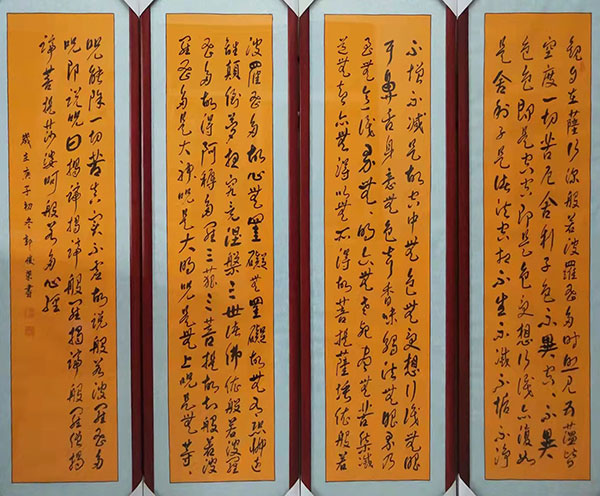 觀自在薩行深般若波羅蜜多時照見五蘊皆
空度一切苦厄舍利子色不異空、不異
色色即是空空即是色受想行識亦復如
是舍利子是諸法空相不生不滅不垢不淨
不增不減是故空中無色無受想行識無眼
耳鼻舌身意無色聲香味觸法無眼界乃
至無意識界無、明亦無老死盡無苦集滅
道無智亦無得以無所得故菩提薩埵依般若
波羅蜜多故心無罣礙無罣礙故無有恐怖遠
離顛倒夢想究竟涅槃三世諸佛依般若波羅
蜜多故得阿耨多羅三藐三菩提故知般若波
羅蜜多是大神咒是大明咒是無上咒是無等、
咒能除一切苦真實不虛故說般若波羅蜜多
咒即說咒曰揭諦揭諦般羅揭諦般羅僧揭
諦菩提莎婆呵般若多心經
歲在庚子初冬郭俊榮書